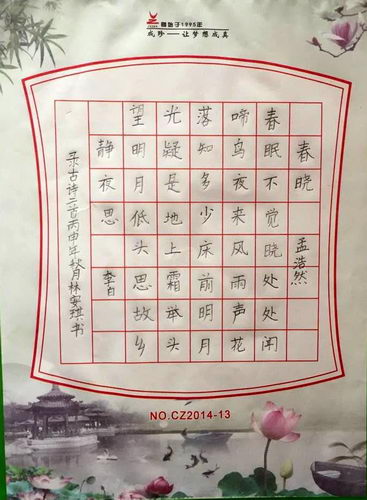 始于1995年
成珍——让梦想成真
春晓 孟浩然
春眠不觉晓处处闻
啼鸟夜来风雨声花
落知多少床前明月
光疑是地上霜举头
望明月低头思故乡
静夜思 李白
录古诗二首丙申年秋月林安琪书
NO.CZ2014-13